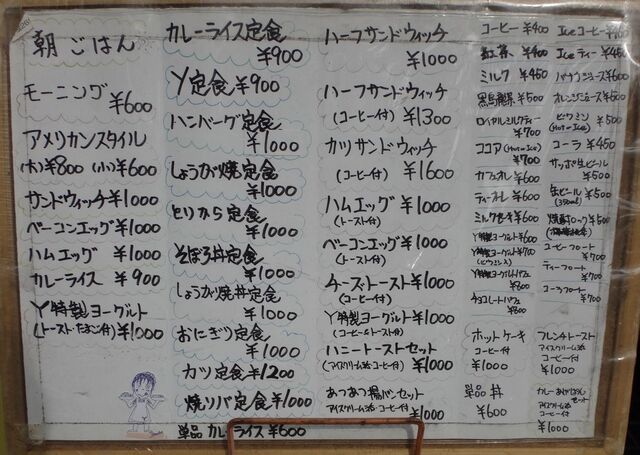 朝ごはん
モーニング ¥600
アメリカンスタイル
(大)¥800 (小)¥600
サンドウィッチ ¥1000
ベーコンエッグ ¥1000
ハムエッグ ¥1000
カレーライス ¥900
Y特製ヨーグルト
(トースト・たまご付)¥1000
カレーライス定食
¥900
Y定食 ¥900
ハンバーグ定食
¥1000
しょうが焼定食
¥1000
とりから定食
¥1000
そぼろ丼定食
¥1000
しょうが焼丼定食
¥1000
おにぎり定食
¥1000
カツ定食 ¥1200
焼ソバ定食 ¥1000
単品 カレーライス ¥600
ハーフサンドウィッチ
¥1000
ハーフサンドウィッチ
(コーヒー付) ¥1300
カツサンドウィッチ
(コーヒー付) ¥1600
ハムエッグ
(トースト付) ¥1000
ベーコンエッグ
(トースト付) ¥1000
チーズトースト ¥1000
(コーヒー付)
Y特製ヨーグルト
(コーヒー&トースト付) ¥1000
ハニートーストセット
(アイスクリーム添 コーヒー付) ¥1000
あつあつ揚パンセット
アイスクリーム添 コーヒー付 ¥1000
コーヒー ¥400
紅茶 ¥400
ミルク ¥450
黒烏龍茶 ¥500
ロイヤルミルクティー
¥700
ココア (Hot or Ice)
¥700
カフェオレ ¥500
ティーオレ ¥500
ミルクセーキ ¥600
Y特製ヨーグルト ¥600
Y特製ヨーグルト ¥700
Y特製ヨーグルトパフェ
¥800
チョコレートパフェ
¥800
ホットケーキ
コーヒー付
¥1000
単品 丼
¥600
Iceコーヒー
Iceティー ¥450
バナナジュース ¥600
オレンジジュース ¥500
ビタミン
(Hot or Ice) ¥500
コーラ ¥450
サッポロ生ビール
¥550
生ビール
(350ml) ¥500
焼酎ロック ¥500
コーヒーフロート
¥700
ティーフロート
¥700
コーラフロート
¥700
フレンチトースト
アイスクリーム添
コーヒー付
¥1000
セット
アイスクリーム添
コーヒー付
¥1000